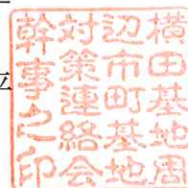 横田基地周
辺市町基地
対策連絡会
幹事之印